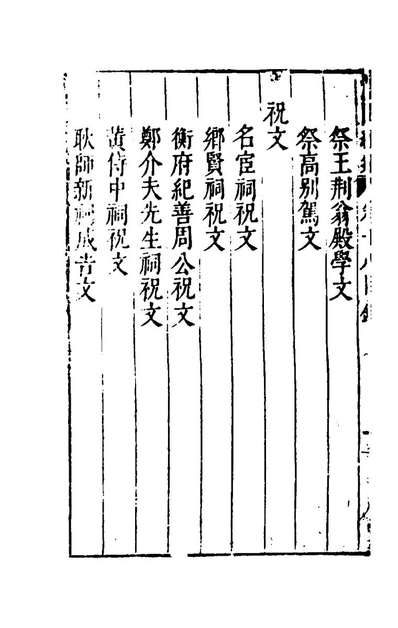 祭王荆翁殿學文
祭高别駕文
祝文
名宦祠祝文
鄉賢祠祝文
衡府紀善周公祝文
鄭介夫先生祠祝文
黄侍中祠祝文
耿師新祠成告文